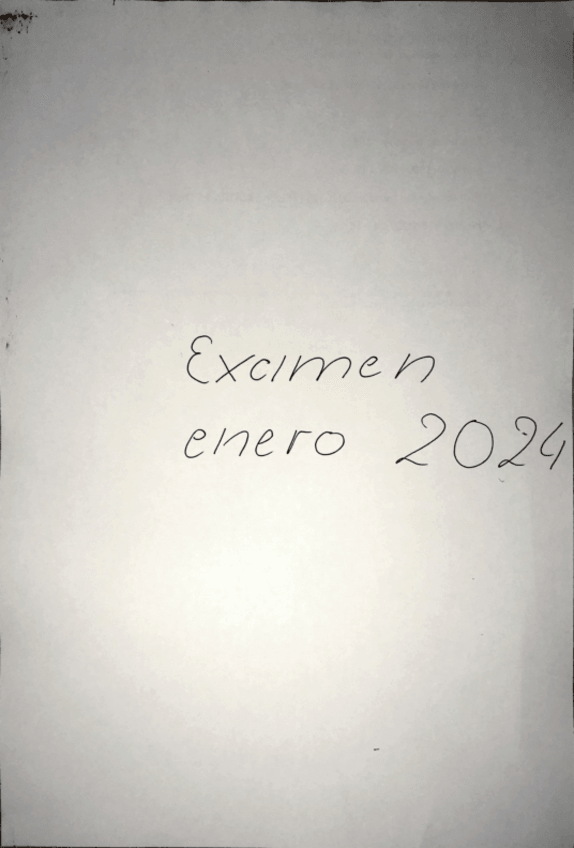 Examen
enero 2024